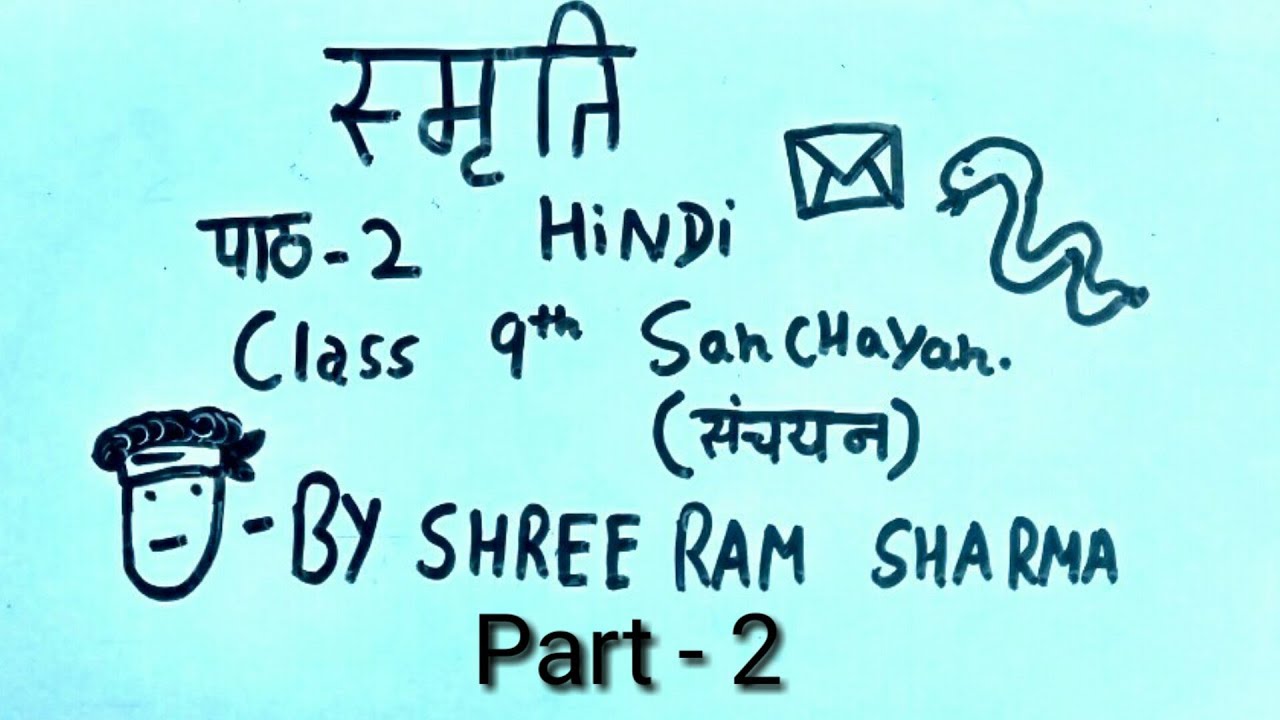 स्मृति
पाठ-2 HiNDi
Class 9th SanCHayan.
(संचयन)
-By SHREE RAM SHARMA
Part - 2